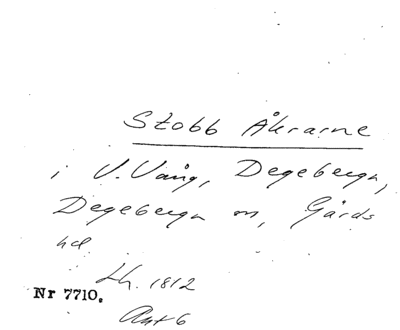 Stobb Åkrarne
i V. Vång, Degeberga,
Degeberga sn, Gärds
hd.
Lh. 1812
Nr 7710.
Akt 6